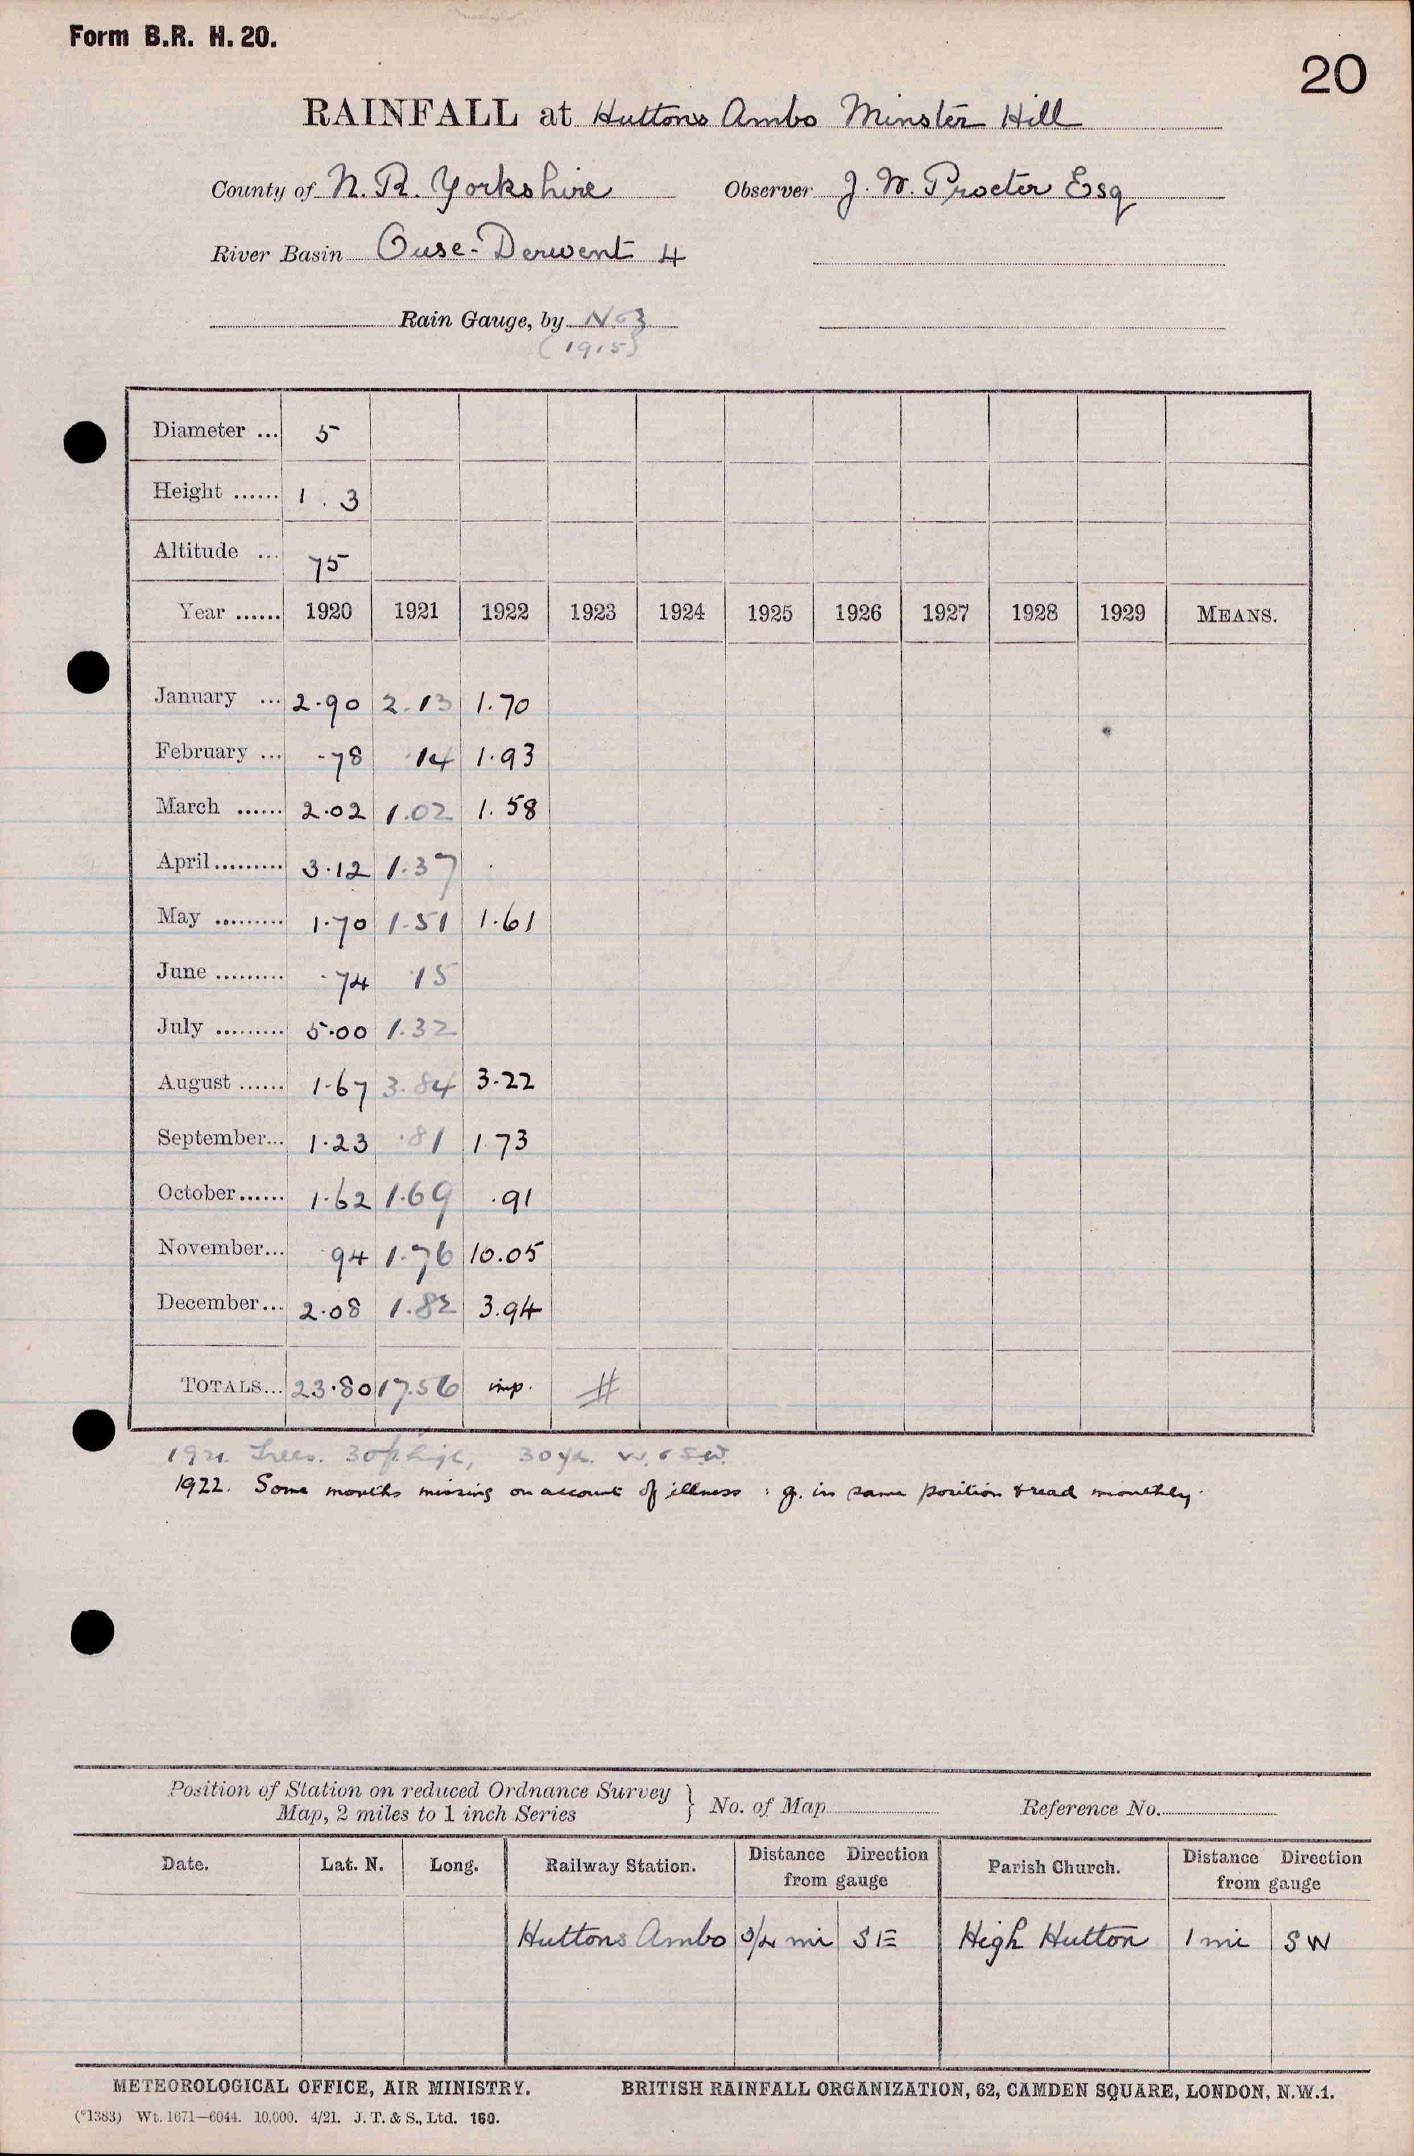 Form B.R. H. 20.
20
RAINFALL at Huttons Ambo Minster Hill
County of N. R. Yorkshire Observer J. W. Procter Esq
River Basin Ouse-Derwent 4
Rain Gauge, by No 3
(1915)
Diameter ... 5
Height ...... 1 . 3
Altitude ... 75
Year ...... 1920 1921 1922 1923 1924 1925 1926 1927 1928 1929 MEANS.
January ... 2.90 2.13 1.70
February ... .78 .14 1.93
March ...... 2.02 1.02 1.58
April......... 3.12 1.37 .
May ......... 1.70 1.51 1.61
June ......... .74 .15
July ......... 5.00 1.32
August ...... 1.67 3.84 3.22
September... 1.23 .81 1.73
October...... 1.62 1.69 .91
November... 94 1.76 10.05
December... 2.08 1.82 3.94
TOTALS... 23.80 17.56 imp. #
1921. Trees. 30 ft high, 30 yds. W. & S.W.
1922. Some months missing on account of illness : g. in same position & read monthly.
Position of Station on reduced Ordnance Survey Map, 2 miles to 1 inch Series } No. of Map Reference No.
Date. Lat. N. Long. Railway Station. Distance Direction from gauge Parish Church. Distance Direction from gauge
Huttons Ambo 3/4 mi SE High Hutton 1 mi SW
METEOROLOGICAL OFFICE, AIR MINISTRY. BRITISH RAINFALL ORGANIZATION, 62, CAMDEN SQUARE, LONDON, N.W.1.
(*1383) Wt. 1671—6044. 10,000. 4/21. J. T. & S., Ltd. 160.